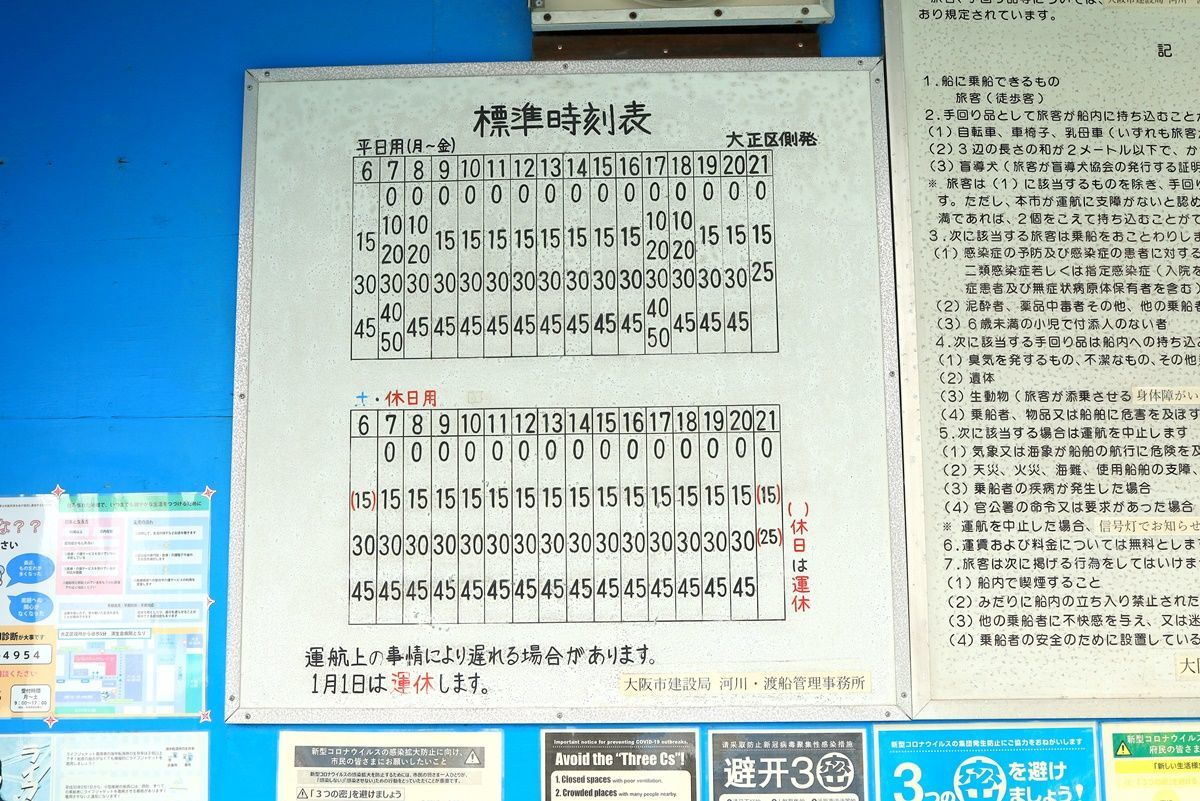 標準時刻表
平日用(月〜金)
大正区側発
6 7 8 9 10 11 12 13 14 15 16 17 18 19 20 21
0 0 0 0 0 0 0 0 0 0 0 0 0 0 0
10 10 10 10
15 15 15 15 15 15 15 15 15 15 15 15
20 20 20 20
30 30 30 30 30 30 30 30 30 30 30 30 30 30 30 25
40 40
45 45 45 45 45 45 45 45 45 45 45 45 45
50 50
土・休日用
6 7 8 9 10 11 12 13 14 15 16 17 18 19 20 21
0 0 0 0 0 0 0 0 0 0 0 0 0 0 0
(15) 15 15 15 15 15 15 15 15 15 15 15 15 15 15 (15)
30 30 30 30 30 30 30 30 30 30 30 30 30 30 30 (25)
45 45 45 45 45 45 45 45 45 45 45 45 45 45 45
( )休日は運休
運航上の事情により遅れる場合があります。
1月1日は運休します。
大阪市建設局 河川・渡船管理事務所
おり規定されています。
記
1.船に乗船できるもの
旅客(徒歩客)
2.手回り品として旅客が船内に持ち込むこと
(1)自転車、車椅子、乳母車(いずれも旅客
(2)3辺の長さの和が2メートル以下で、か
(3)盲導犬(旅客が盲導犬協会の発行する証明
※ 旅客は(1)に該当するものを除き、手回り
す。ただし、本市が運航に支障がないと認め
満であれば、2個をこえて持ち込むことがで
3.次に該当する旅客は乗船をおことわりしま
(1)感染症の予防及び感染症の患者に対する
二類感染症若しくは指定感染症(入院を
症患者及び無症状病原体保有者を含む)
(2)泥酔者、薬品中毒者その他、他の乗船者
(3)6歳未満の小児で付添人のない者
4.次に該当する手回り品は船内への持ち込み
(1)臭気を発するもの、不潔なもの、その他
(2)遺体
(3)生動物(旅客が添乗させる 身体障がい
(4)乗船者、物品又は船舶に危害を及ぼす
5.次に該当する場合は運航を中止します
(1)気象又は海象が船舶の航行に危険を及
(2)天災、火災、海難、使用船舶の支障、
(3)乗船者の疾病が発生した場合
(4)官公署の命令又は要求があった場合
※ 運航を中止した場合、信号灯でお知らせ
6.運賃および料金については無料とします
7.旅客は次に掲げる行為をしてはいけま
(1)船内で喫煙すること
(2)みだりに船内の立ち入り禁止された
(3)他の乗船者に不快感を与え、又は迷
(4)乗船者の安全のために設置している
4954
受付時間
月〜土
9:00〜17:00
新型コロナウイルスの感染拡大防止に向け、
市民の皆さまにお願いしたいこと
「3つの密」を避けましょう
Important notice for preventing COVID-19 outbreaks.
Avoid the "Three Cs"!
1. Closed spaces with poor ventilation.
2. Crowded places with many people nearby.
请采取防止新冠病毒聚集性感染措施
避开3
新型コロナウイルスの集団発生防止にご協力をおねがいします
3つの
を避け
ましょう!
新型コロナウイル
府民の皆さま
「新しい生活様